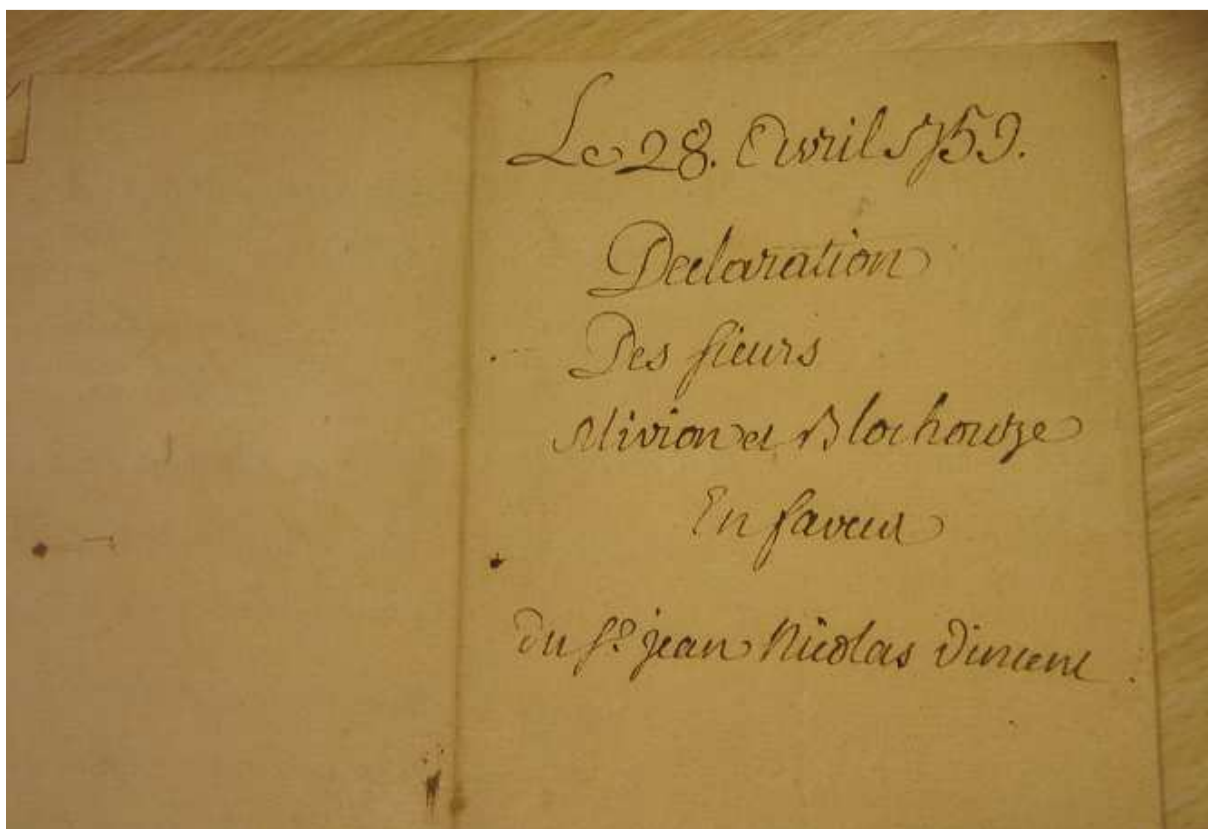 Le 28. Avril 1759.
Declaration
Des sieurs
et Blochouse
En faveur
Du Sr. jean Nicolas Vincent.